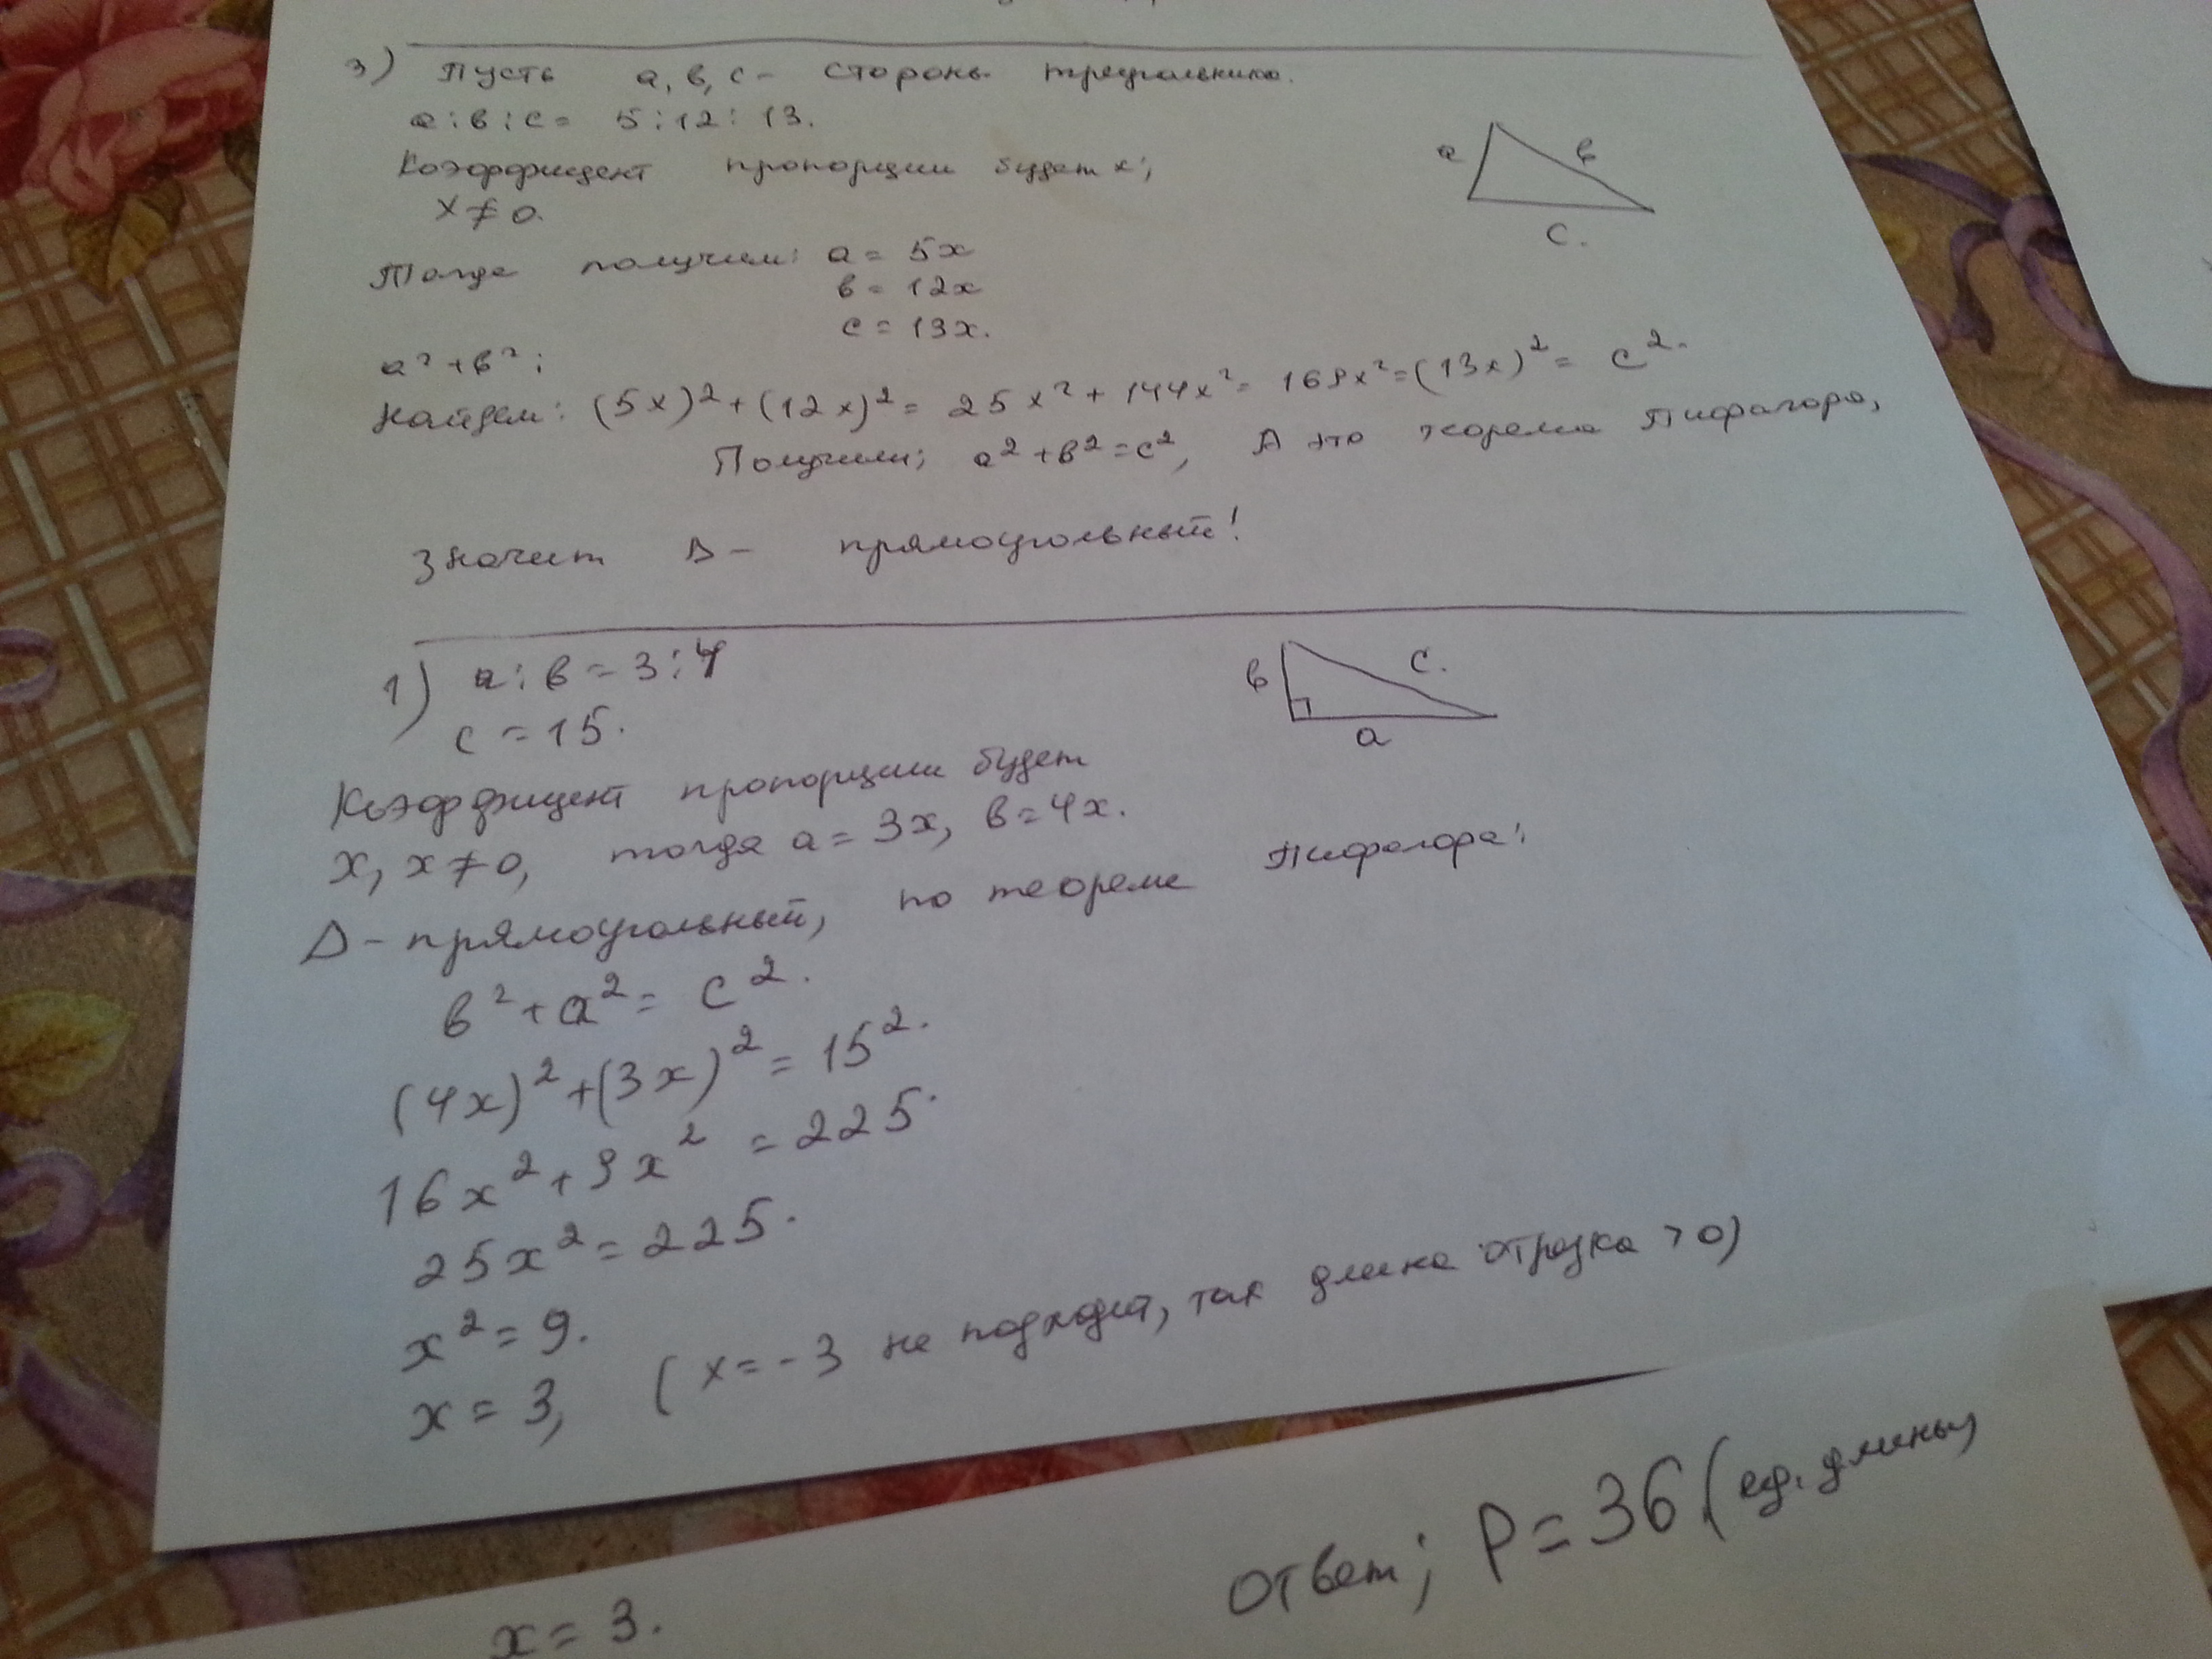 3) Пусть а, в, с - стороны треугольника.
а : в : с = 5 : 12 : 13.
Коэффициент пропорции будет х;
х ≠ 0.
а
в
с.
Тогда получим: а = 5х
в = 12х
с = 13х.
а² + в²;
Найдем: (5х)² + (12х)² = 25х² + 144х² = 169х² = (13х)² = с².
Получили; а² + в² = с², А это теорема Пифагора,
Значит Δ - прямоугольный!
1) а : в = 3 : 4
с = 15.
в
с.
а
Коэффициент пропорции будет
х, х ≠ 0, тогда а = 3х, в = 4х.
Δ - прямоугольный, по теореме Пифагора:
в² + а² = с².
(4х)² + (3х)² = 15².
16х² + 9х² = 225.
25х² = 225.
х² = 9.
х = 3, (х = -3 не подходит, так длина отрезка > 0)
х = 3.
Ответ; Р = 36 (ед. длины)